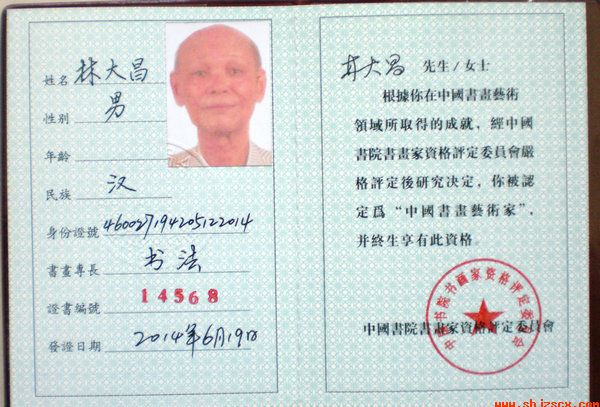 姓名 林大昌
性别 男
年齡
民族 汉
身份證號 460027194205122014
書畫專長 书法
證書編號 14568
發證日期 2014年6月19日
林大昌 先生/女士
根據你在中國書畫藝術
領域所取得的成就，經中國
書院書畫家資格評定委員會嚴
格評定後研究決定，你被認
定爲“中國書畫藝術家”，
并終生享有此資格。
中國書院書畫家資格評定委員會
中国书院书画家资格评定委员会
www.shizscx.com